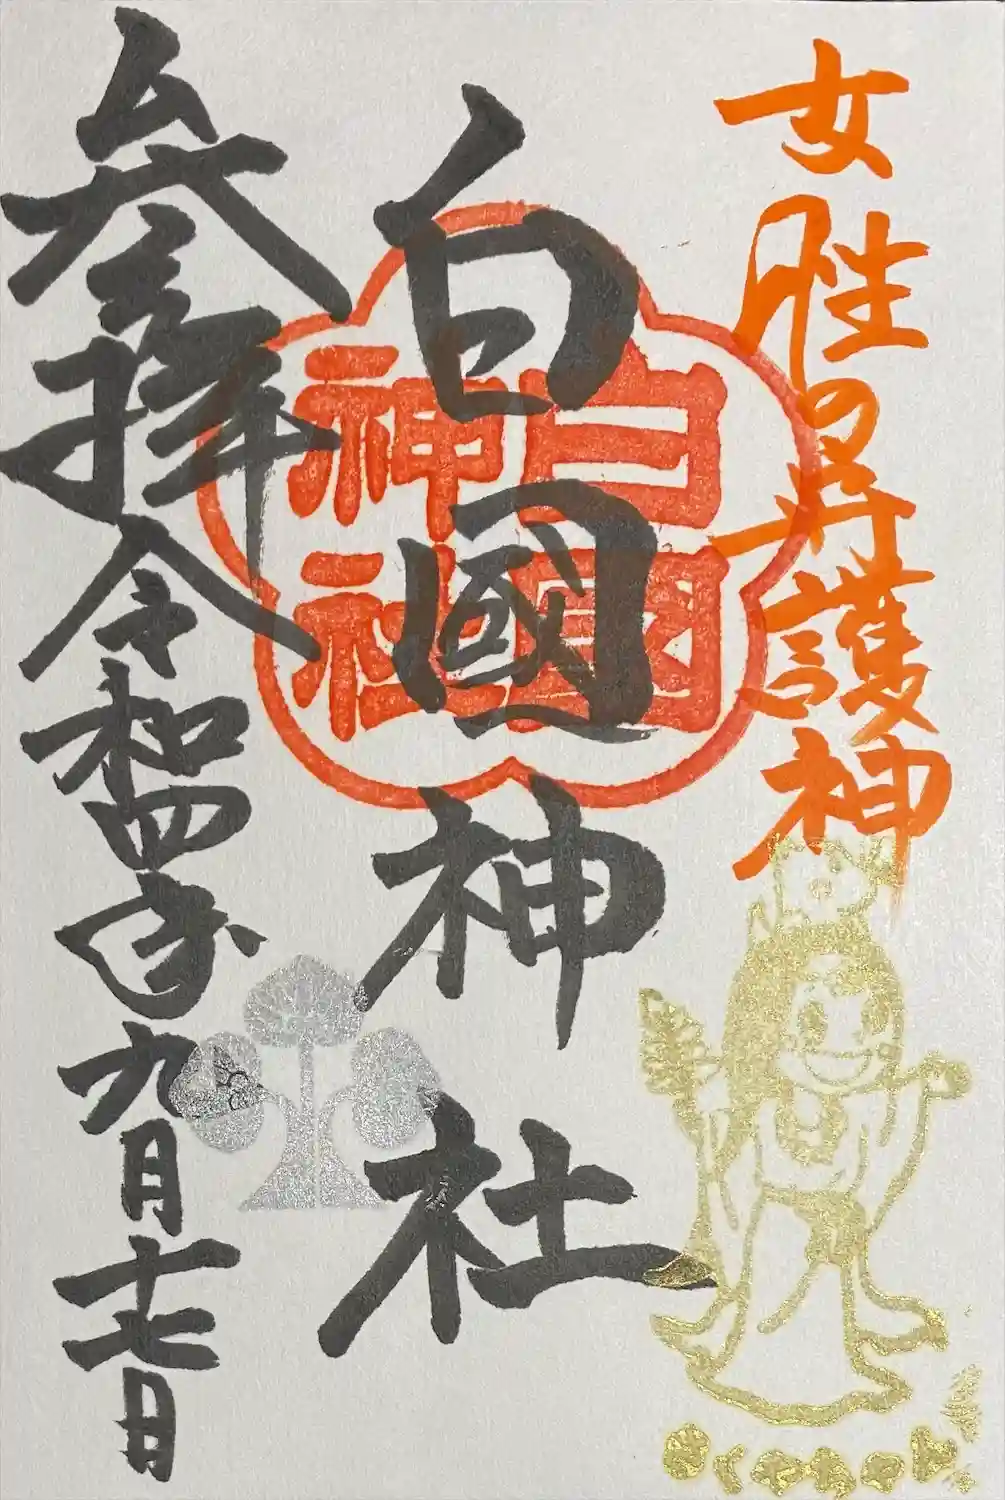 女性の守護神
白國神社
白國
神社
參拝 令和四年九月十七日
さくやちゃん